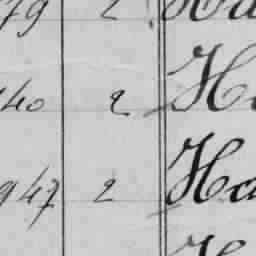 79 2 Ha
40 2 H
947 2 Ha